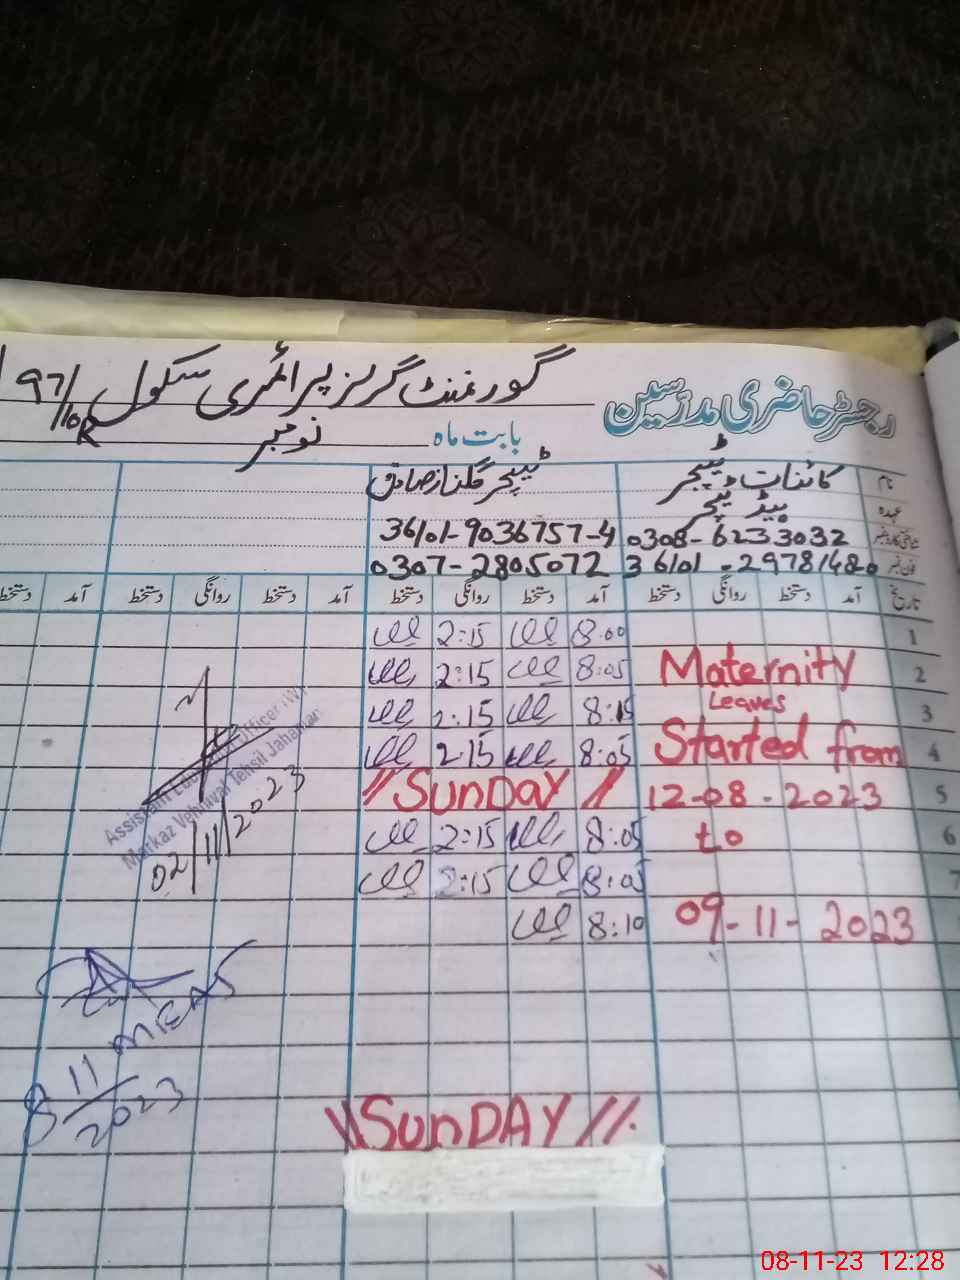 رجسٹر حاضری مدرسین گورنمنٹ گرلز پرائمری سکول 97/10R
بابت ماہ نومبر
نام کائنات ٹیچر ٹیچر گلناز صادق
عہدہ ہیڈ ٹیچر
شناختی کارڈ نمبر 0308-6233032 36101-9036757-4
فون نمبر 36101-2978148-0 0307-2805072
تاریخ آمد دستخط روانگی دستخط آمد دستخط روانگی دستخط آمد دستخط روانگی دستخط آمد دستخط
1 8:00 2:15
2 Maternity 8:05 2:15
3 Leaves 8:15 2:15
4 Started from 8:05 2:15
5 12-08-2023 // SunDAY //
6 to 8:05 2:15
7 8:05 2:15
09-11-2023 8:10
Assistant Education Officer (W)
Markaz Vehniwal Tehsil Jahanian
02/11/2023
MEA
8/11/2023
\\ SunDAY //.
08-11-23 12:28